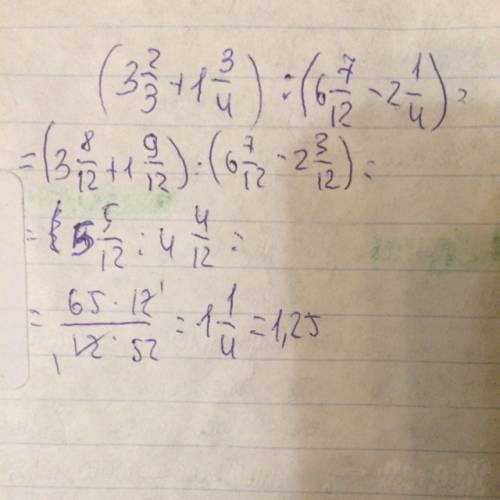 (3 2/3 + 1 3/4) : (6 7/12 - 2 1/4) =
= (3 8/12 + 1 9/12) : (6 7/12 - 2 3/12) =
= 5 5/12 : 4 4/12 =
= 65 · 12 / 12 · 52 = 1 1/4 = 1,25